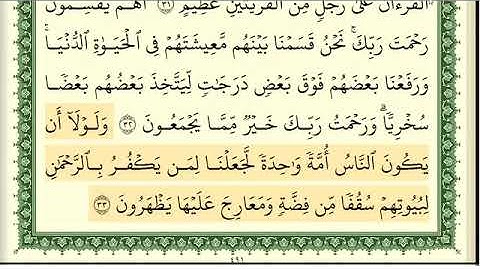 ٱلۡقُرۡءَانُ عَلَىٰ رَجُلٖ مِّنَ ٱلۡقَرۡيَتَيۡنِ عَظِيمٍ ٣١ أَهُمۡ يَقۡسِمُونَ
رَحۡمَتَ رَبِّكَۚ نَحۡنُ قَسَمۡنَا بَيۡنَهُم مَّعِيشَتَهُمۡ فِي ٱلۡحَيَوٰةِ ٱلدُّنۡيَاۚ
وَرَفَعۡنَا بَعۡضَهُمۡ فَوۡقَ بَعۡضٖ دَرَجَٰتٖ لِّيَتَّخِذَ بَعۡضُهُم بَعۡضٗا
سُخۡرِيّٗاۗ وَرَحۡمَتُ رَبِّكَ خَيۡرٞ مِّمَّا يَجۡمَعُونَ ٣٢ وَلَوۡلَآ أَن
يَكُونَ ٱلنَّاسُ أُمَّةٗ وَٰحِدَةٗ لَّجَعَلۡنَا لِمَن يَكۡفُرُ بِٱلرَّحۡمَٰنِ
لِبُيُوتِهِمۡ سُقُفٗا مِّن فِضَّةٖ وَمَعَارِجَ عَلَيۡهَا يَظۡهَرُونَ ٣٣
٤٩١